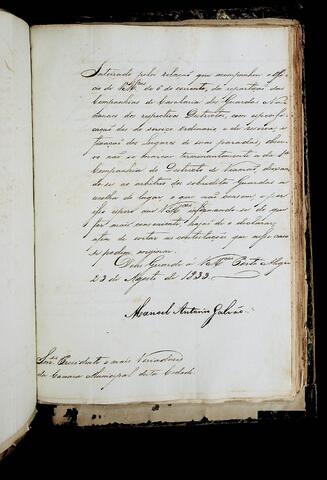 Inteirado pela relação que acompanhou o offi-
cio de V. M.ces de 6 do corrente, da repartição das
Companhias de Cavalaria das Guardas Na-
cionaes dos respectivos Districtos, com especifi-
cação das de serviço ordinario e de reserva, e
fixação dos lugares de suas paradas, obser-
vo não se marcar terminantemente a da 1.ª
Companhia do Districto de Viamão, deixan-
do-se ao arbitrio dos sobreditos Guardas a
escolha do lugar, o que não convem, e por
isso espero que V. M.ces informando-se do que
for mais conveniente, hajão de o declarar,
afim de evitar as contestações que nesse caso
se podem originar.
Deos Guarde a V. M.ces Porto Alegre
23 de Agosto de 1833
Manoel Antonio Galvão
Snr.es Presidente e mais Vereadores
da Camara Municipal desta Cidade.